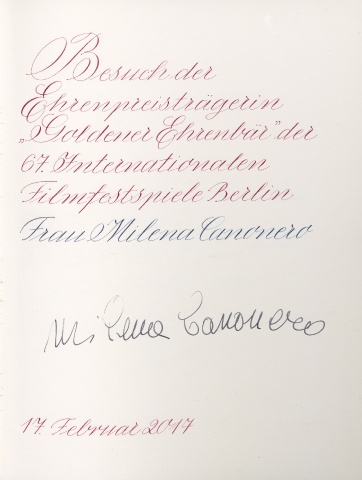 Besuch der
Ehrenpreisträgerin
„Goldener Ehrenbär" der
67. Internationalen
Filmfestspiele Berlin
Frau Milena Canonero
Milena Canonero
17. Februar 2017